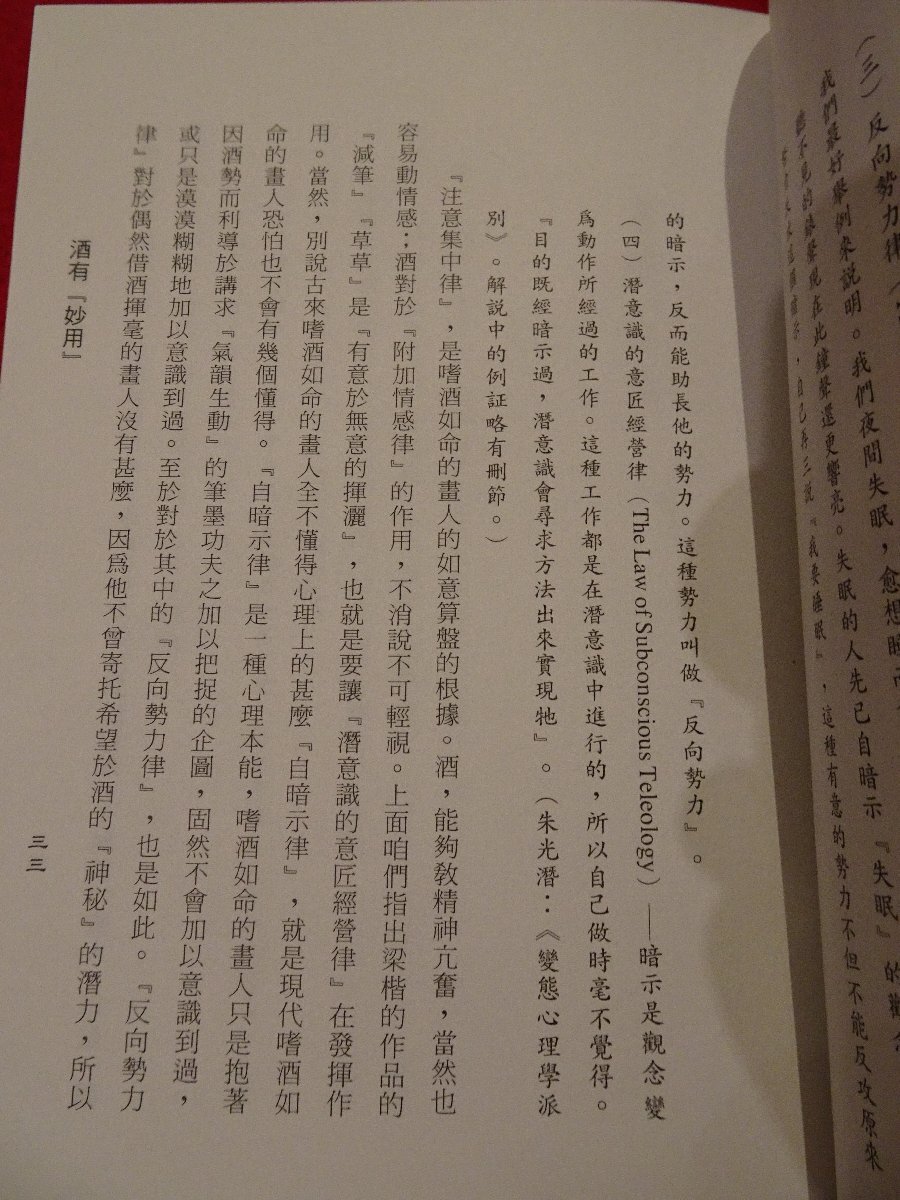 （三）反向勢力律（
我們最好舉例來說明。我們夜間失眠，愈想睡而
聽不見的鐘聲現在此鐘聲還更響亮。失眠的人先已自暗示『失眠』的觀念
，自己再三說『我要睡眠』，這種有意的勢力不但不能反攻原來
的暗示，反而能助長他的勢力。這種勢力叫做『反向勢力』。
（四）潛意識的意匠經營律（The Law of Subconscious Teleology）——暗示是觀念變
爲動作所經過的工作。這種工作都是在潛意識中進行的，所以自己做時毫不覺得。
『目的既經暗示過，潛意識會尋求方法出來實現牠』。（朱光潛：《變態心理學派
別》。解說中的例証略有刪節。）
『注意集中律』，是嗜酒如命的畫人的如意算盤的根據。酒，能夠教精神亢奮，當然也
容易動情感；酒對於『附加情感律』的作用，不消說不可輕視。上面咱們指出梁楷的作品的
『減筆』『草草』是『有意於無意的揮灑』，也就是要讓『潛意識的意匠經營律』在發揮作
用。當然，別說古來嗜酒如命的畫人全不懂得心理上的甚麼『自暗示律』，就是現代嗜酒如
命的畫人恐怕也不會有幾個懂得。『自暗示律』是一種心理本能，嗜酒如命的畫人只是抱著
因酒勢而利導於講求『氣韻生動』的筆墨功夫之加以把捉的企圖，固然不會加以意識到過，
或只是漠漠糊糊地加以意識到過。至於對於其中的『反向勢力律』，也是如此。『反向勢力
律』對於偶然借酒揮毫的畫人沒有甚麼，因爲他不曾寄托希望於酒的『神秘』的潛力，所以
酒有『妙用』
三三